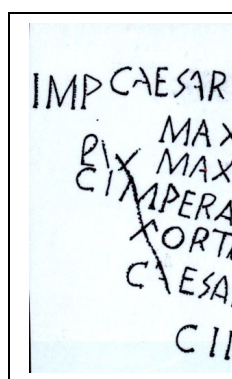 IMP CAESAR
MAX
PIX MAX
CIMPERA
XORTA
CAESA
CII